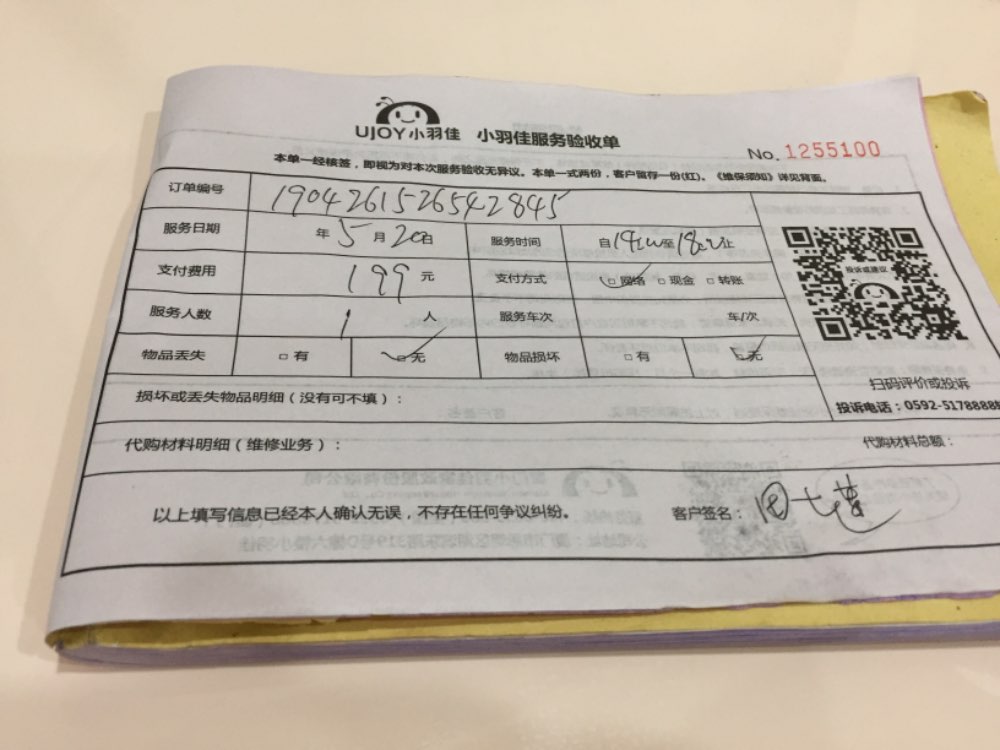 UJOY小羽佳 小羽佳服务验收单
No. 1255100
本单一经核签，即视为对本次服务验收无异议。本单一式两份，客户留存一份(红)。《维保须知》详见背面。
订单编号 1904261526542845
服务日期 年 5 月 20 日 服务时间 自 14:00 至 18:00 止
支付费用 199 元 支付方式 □网络 □现金 □转账
服务人数 1 人 服务车次 车/次
物品丢失 □有 □无 物品损坏 □有 □无
投诉或建议
扫码评价或投诉
损坏或丢失物品明细（没有可不填）：
投诉电话：0592-5178888
代购材料明细（维修业务）： 代购材料总额：
以上填写信息已经本人确认无误，不存在任何争议纠纷。 客户签名：